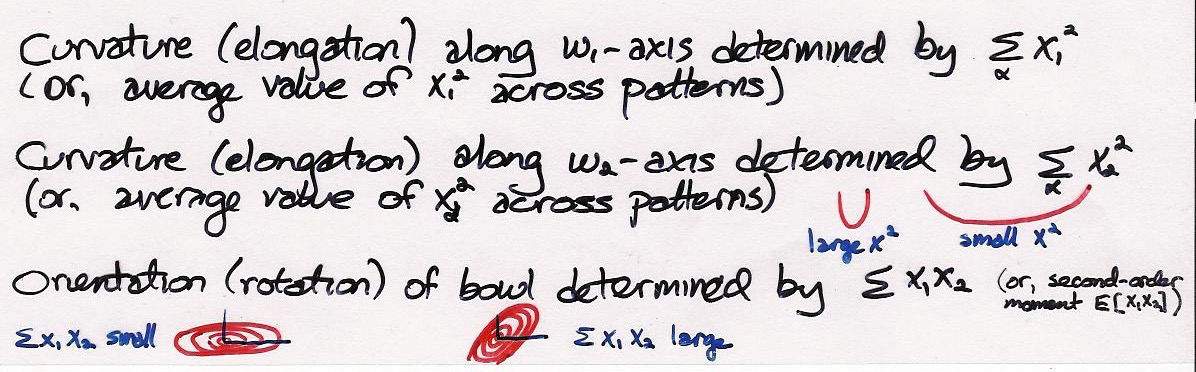 Curvature (elongation) along w₁-axis determined by Σ_α x₁²
(or, average value of x₁² across patterns)
Curvature (elongation) along w₂-axis determined by Σ_α x₂²
(or, average value of x₂² across patterns)
large x² small x²
Orientation (rotation) of bowl determined by Σ x₁x₂ (or, second-order
moment E[x₁x₂])
Σx₁x₂ small Σ x₁x₂ large